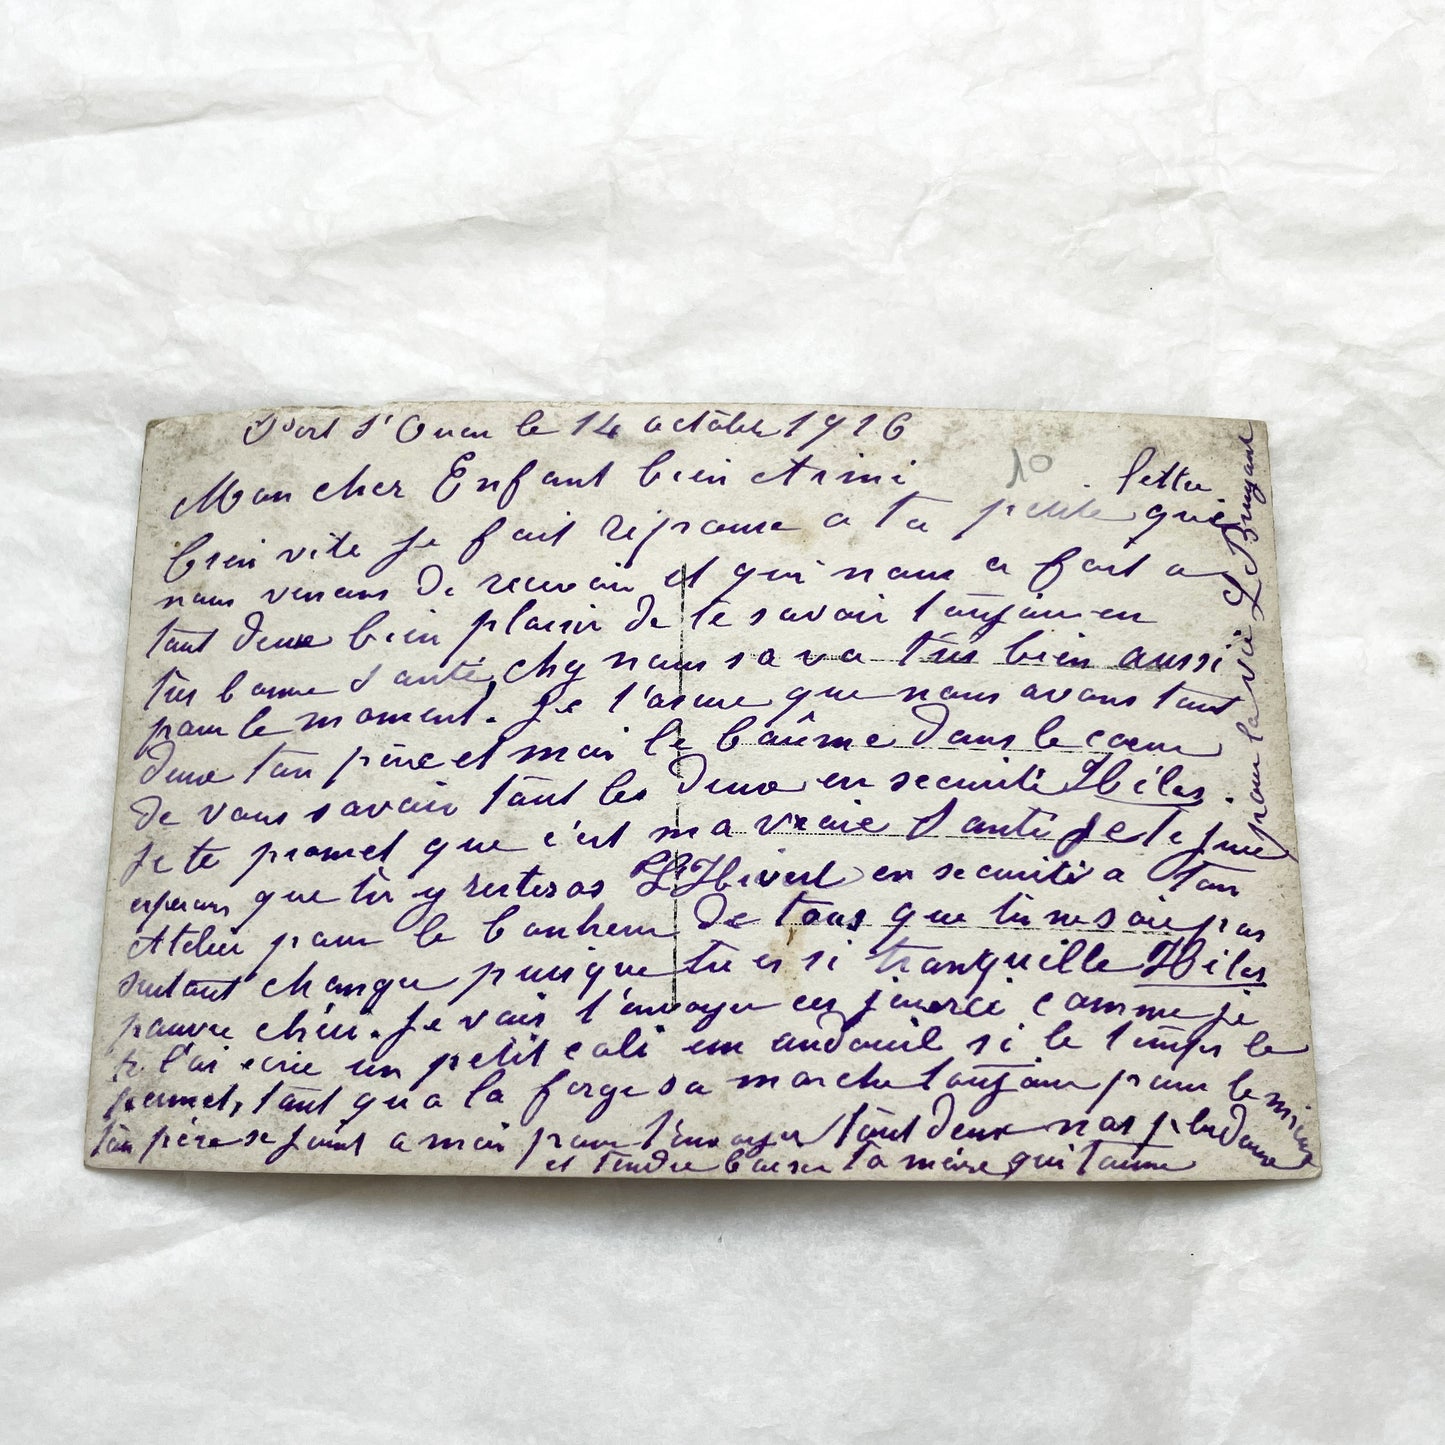 Port S' Ouen le 14 octobre 1916
10
Mon cher Enfant bien Aimé
lettre
bien vite je fait réponse a ta petite que
nous venons de recevoir et qui nous a fait a
tout deux bien plaisir de te savoir toujou en
très bonne Santé chez nous sa va très bien aussi
pour le moment. Je t'assure que nous avons tout
deux ton père et moi le baûme dans le coeur
de vous savoir tout les deux en securité
je te promet que c'est ma vraie Santé Je te jure
esperons que tu y resteras L'Hivert en securité a ton
Atelier pour le bonheur de tous que tu ne soie pas
surtout changer puisque tu es si tranquille
pauvre chéri. Je vais t'envoyer ces jours ci comme je
te l'ai ecrie un petit coli une andouil si le temps le
permet, tout qu a la forge sa marche toujour pour le mieux
ton père se joint a moi pour t'envoyer tout deux nos plus douce
et tendre baiser ta mère qui t'aime
pour la vie L Bruyant